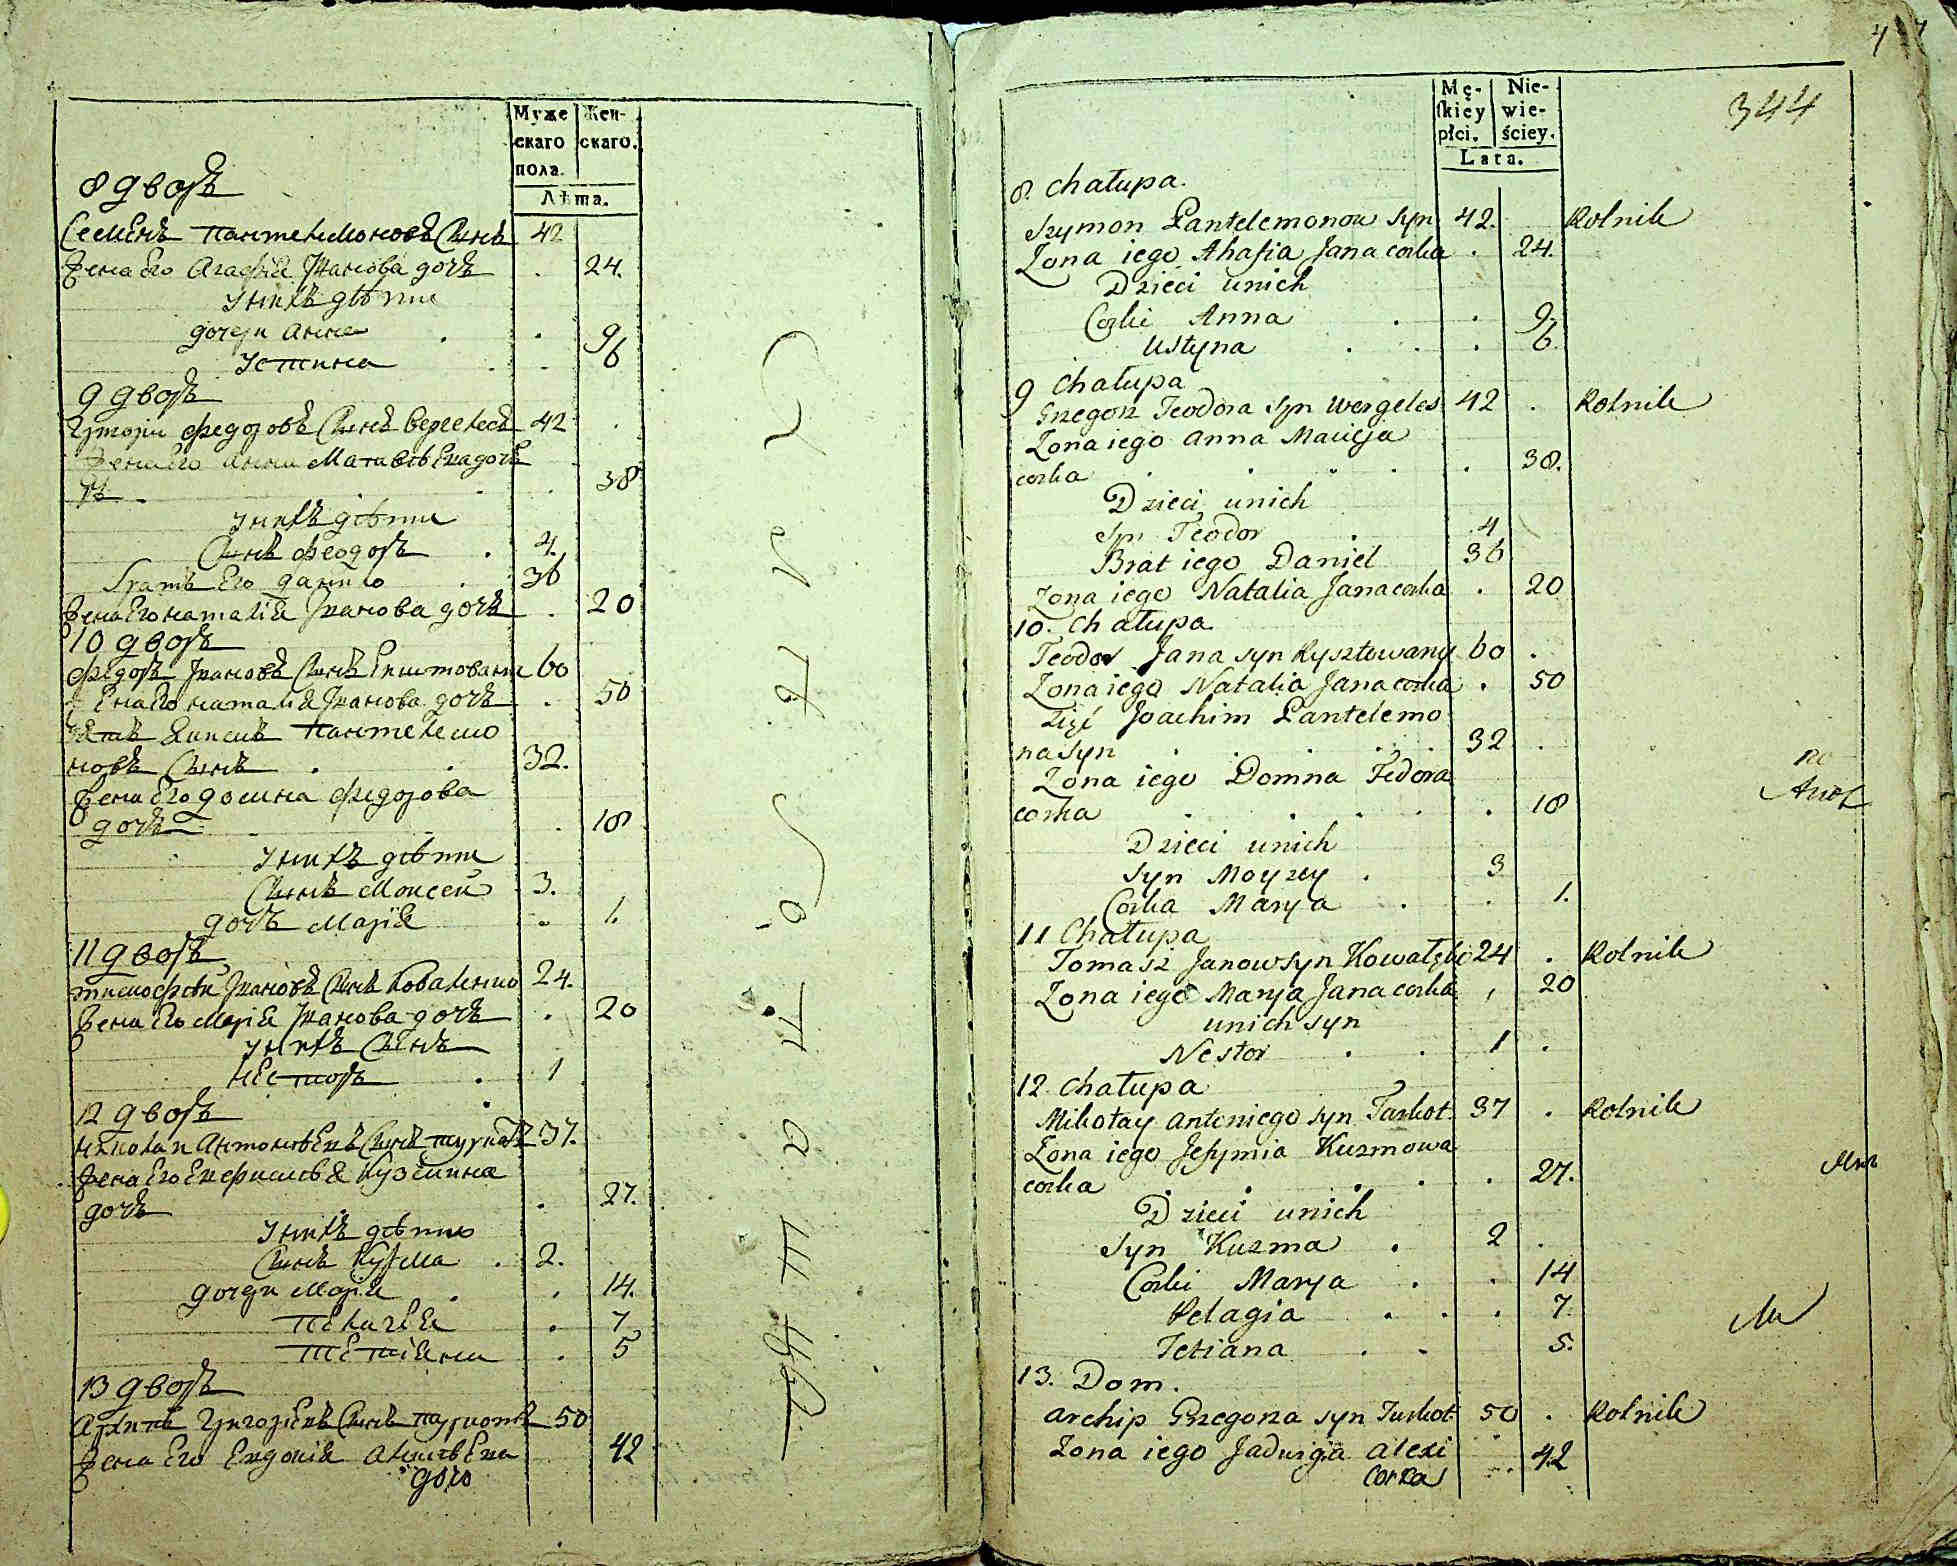 Муже
скаго
пола.
Жен-
скаго.
Лѣта.
8 дворъ
Семенъ Пантелемоновъ Сынъ 42
Жена Его Агафіа Іванова дочъ . 24.
У нихъ дѣти
дочери Анна . . 9
Устина . . 6
9 дворъ
Григори Федоровъ Сынъ Вергелесъ 42 .
Жена Его Анна Матвѣева доч
ръ . . . 38
У нихъ дѣти
Сынъ Феодоръ . 4.
Братъ Его Данило . 36
Жена Его Наталіа Іванова дочъ . 20
10 дворъ
Федоръ Івановъ Сынъ 60
Жена Его Наталіа Іванова дочъ . 50
Зять Якимъ Пантелемо
новъ Сынъ . . 32.
Жена Его Домна Федорова
дочъ . . 18
У нихъ дѣти
Сынъ Моисей 3.
дочъ Маріа . 1.
11 дворъ
Тимофѣй Івановъ Сынъ Коваленко 24.
Жена Его Маріа Іванова дочъ . 20
У нихъ Сынъ
Несторъ . 1
12 дворъ
Николаи Антоновъ Сынъ Туркотъ 37.
Жена Его Евфимія Кузмина
дочъ . 27.
У нихъ дѣти
Сынъ Кузма . 2.
дочери Маріа . . 14.
Пелагеа . 7
Тетіана . 5
13 дворъ
Архипъ Григоріевъ Сынъ Туркотъ 50
Жена Его Евдокіа 42
дочъ
4
344
Mę-
skiey
płci.
Nie-
wie-
ściey.
Lata.
8. Chałupa.
Szymon Pantelemonow Syn 42. Rolnik
Zona iego Ahafia Jana corka . 24.
Dzieci unich
Corki Anna . . 9.
Ustyna . . . 6
9 Chałupa
Grzegorz Teodora Syn Wergeles 42 . Rolnik
Zona iego Anna Macieja
corka . . . . . 38.
Dzieci unich
Syn Teodor . 4
Brat iego Daniel 36
Zona iego Natalia Jana corka . 20
10. Chałupa
Teodor Jana syn Rysztowany 60 .
Zona iego Natalia Jana corka . 50
Zięć Joachim Pantelemo
na Syn . . . . . 32 .
Zona iego Domna Fedora
corka . . . . . 18
Dzieci unich
Syn Moyzey . 3
Corka Marya . . 1.
11 Chałupa
Tomasz Janow Syn Kowalenko 24 . Rolnik
Zona iego Marya Jana corka , 20
unich syn
Nestor . . 1 .
12 Chałupa
Mikołay Antoniego syn Turkot 37 . Rolnik
Zona iego Jefymia Kuzmowa
corka . . . . 27.
Dzieci unich
Syn Kuzma . 2 .
Corki Marya . . 14
Pelagia . . . 7.
Tetiana . . 5.
13. Dom.
Archip Grzegorza syn Turkot 50 . Rolnik
Zona iego Jadwiga Alexi
corka . . 42